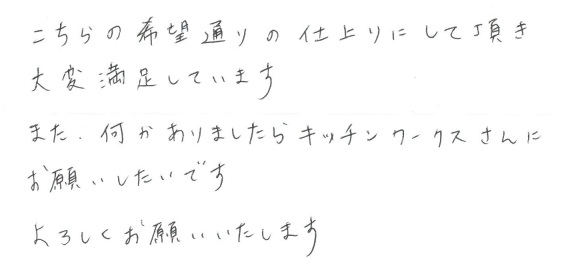 こちらの希望通りの仕上りにして頂き
大変満足しています
また、何かありましたらキッチンワークスさんに
お願いしたいです
よろしくお願いいたします